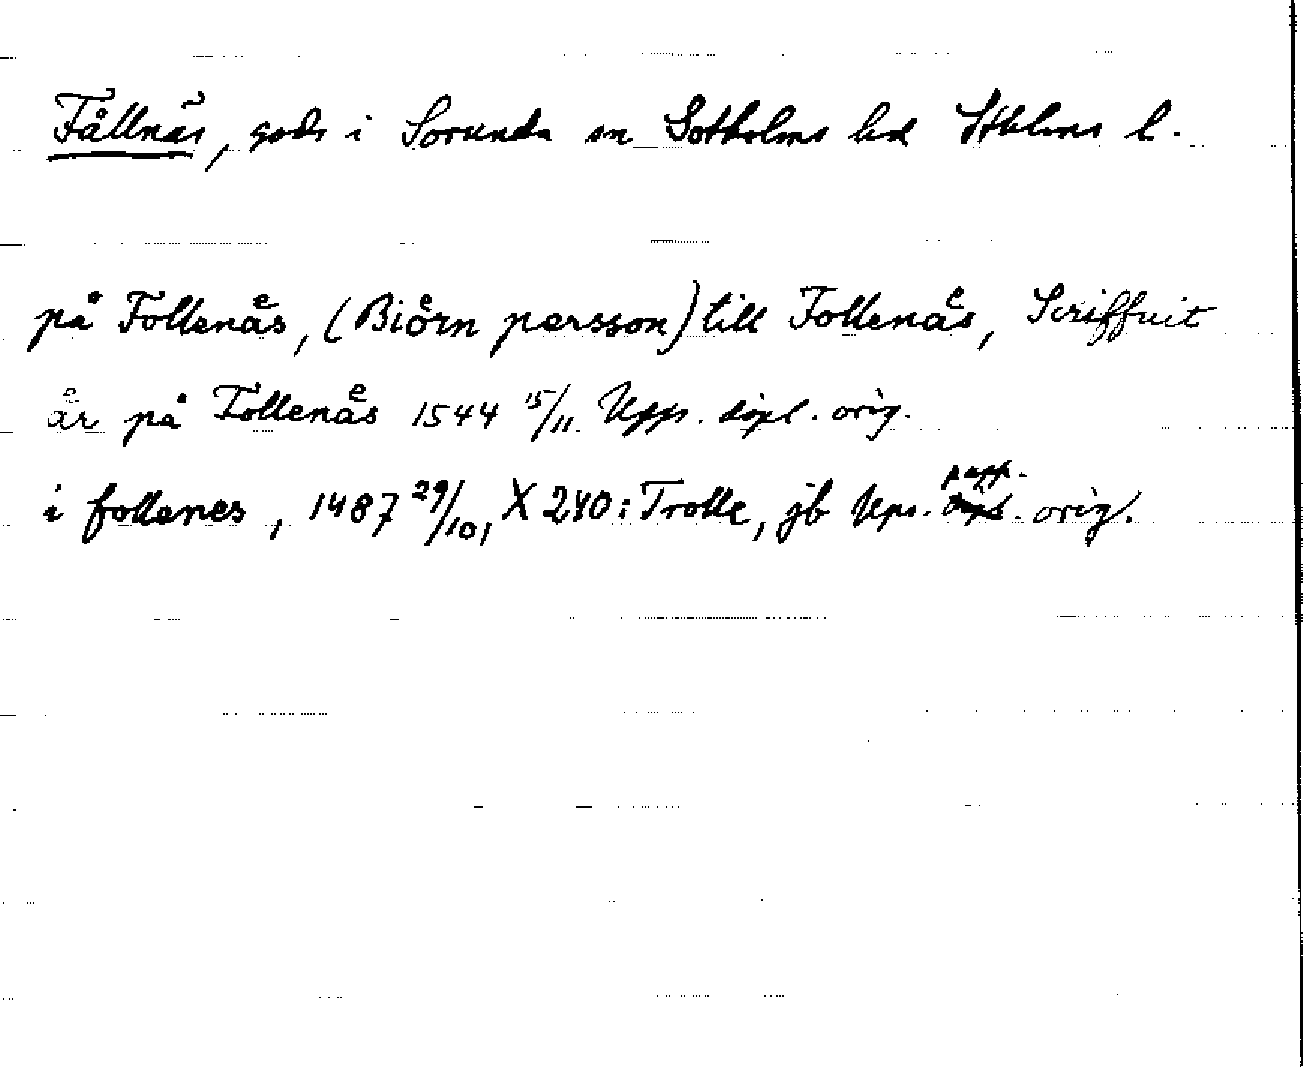 Fållnäs, gods i Sorunda sn Sotholms hd Sthlms l.
på Follenaͤs, (Bioͤrn persson) till Follenaͤs, Scriffuit
aͤr på Follenaͤs 1544 15/11. Upps. dipl. orig.
i follenes, 1487 29/10, X 240: Trolle, jb Ups. papp. orig.